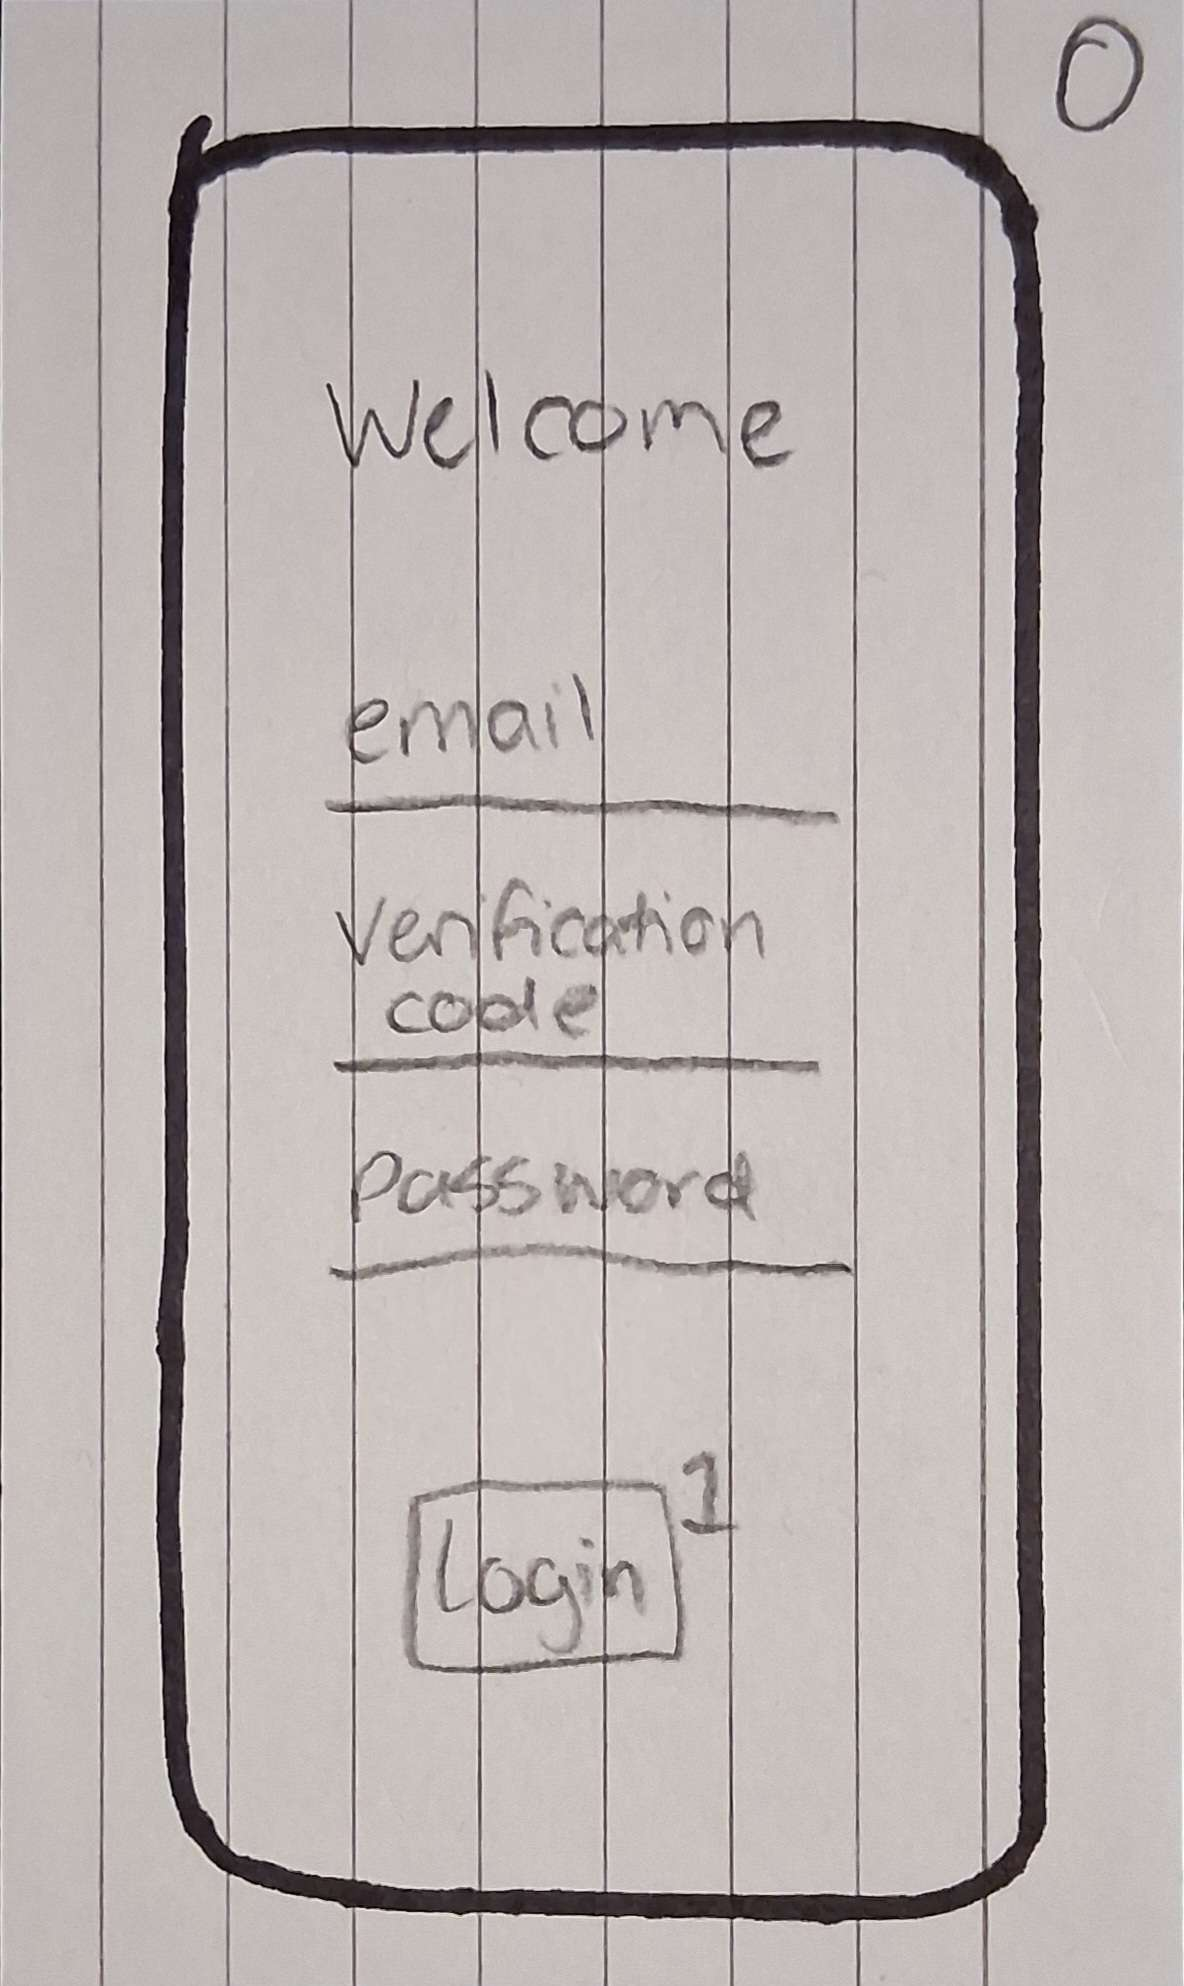 0
Welcome
email
Verification
code
Password
Login
1